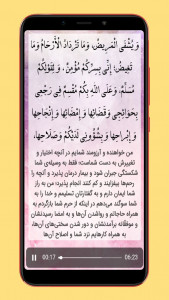 وَيُشْفَى الْمَرِيضُ، وَمَا تَزْدَادُ الْأَرْحَامُ وَمَا
تَغِيضُ، إِنِّي بِسِرِّكُمْ مُؤْمِنٌ، وَلِقَوْلِكُمْ
مُسَلِّمٌ، وَعَلَى اللهِ بِكُمْ مُقْسِمٌ فِي رَجْعِي
بِحَوَائِجِي وَقَضَائِهَا وَإِمْضَائِهَا وَإِنْجَاحِهَا
وَإِبْرَاحِهَا وَبِشُؤُونِي لَدَيْكُمْ وَصَلَاحِهَا،
من خواهنده و آرزومند شمایم در آنچه اختیار و
تغییرش به دست شماست؛ فقط به وسیله‌ی شما
شکستگی جبران شود و بیمار درمان پذیرد و آنچه را
رحم‌ها بیفزایند و کم کنند انجام پذیرد؛ من به راز
شما ایمان دارم و به گفتارتان تسلیمم و خدا را به
شما سوگند می‌دهم در اینکه از حرم شما بازگردم به
همراه حاجاتم و رواشدن آن‌ها و به امضا رسیدنشان
و موفقانه برآمدنشان و دور شدن سختی‌های آن‌ها،
به همراه کارهایم نزد شما و اصلاح آن‌ها
00:17
06:23